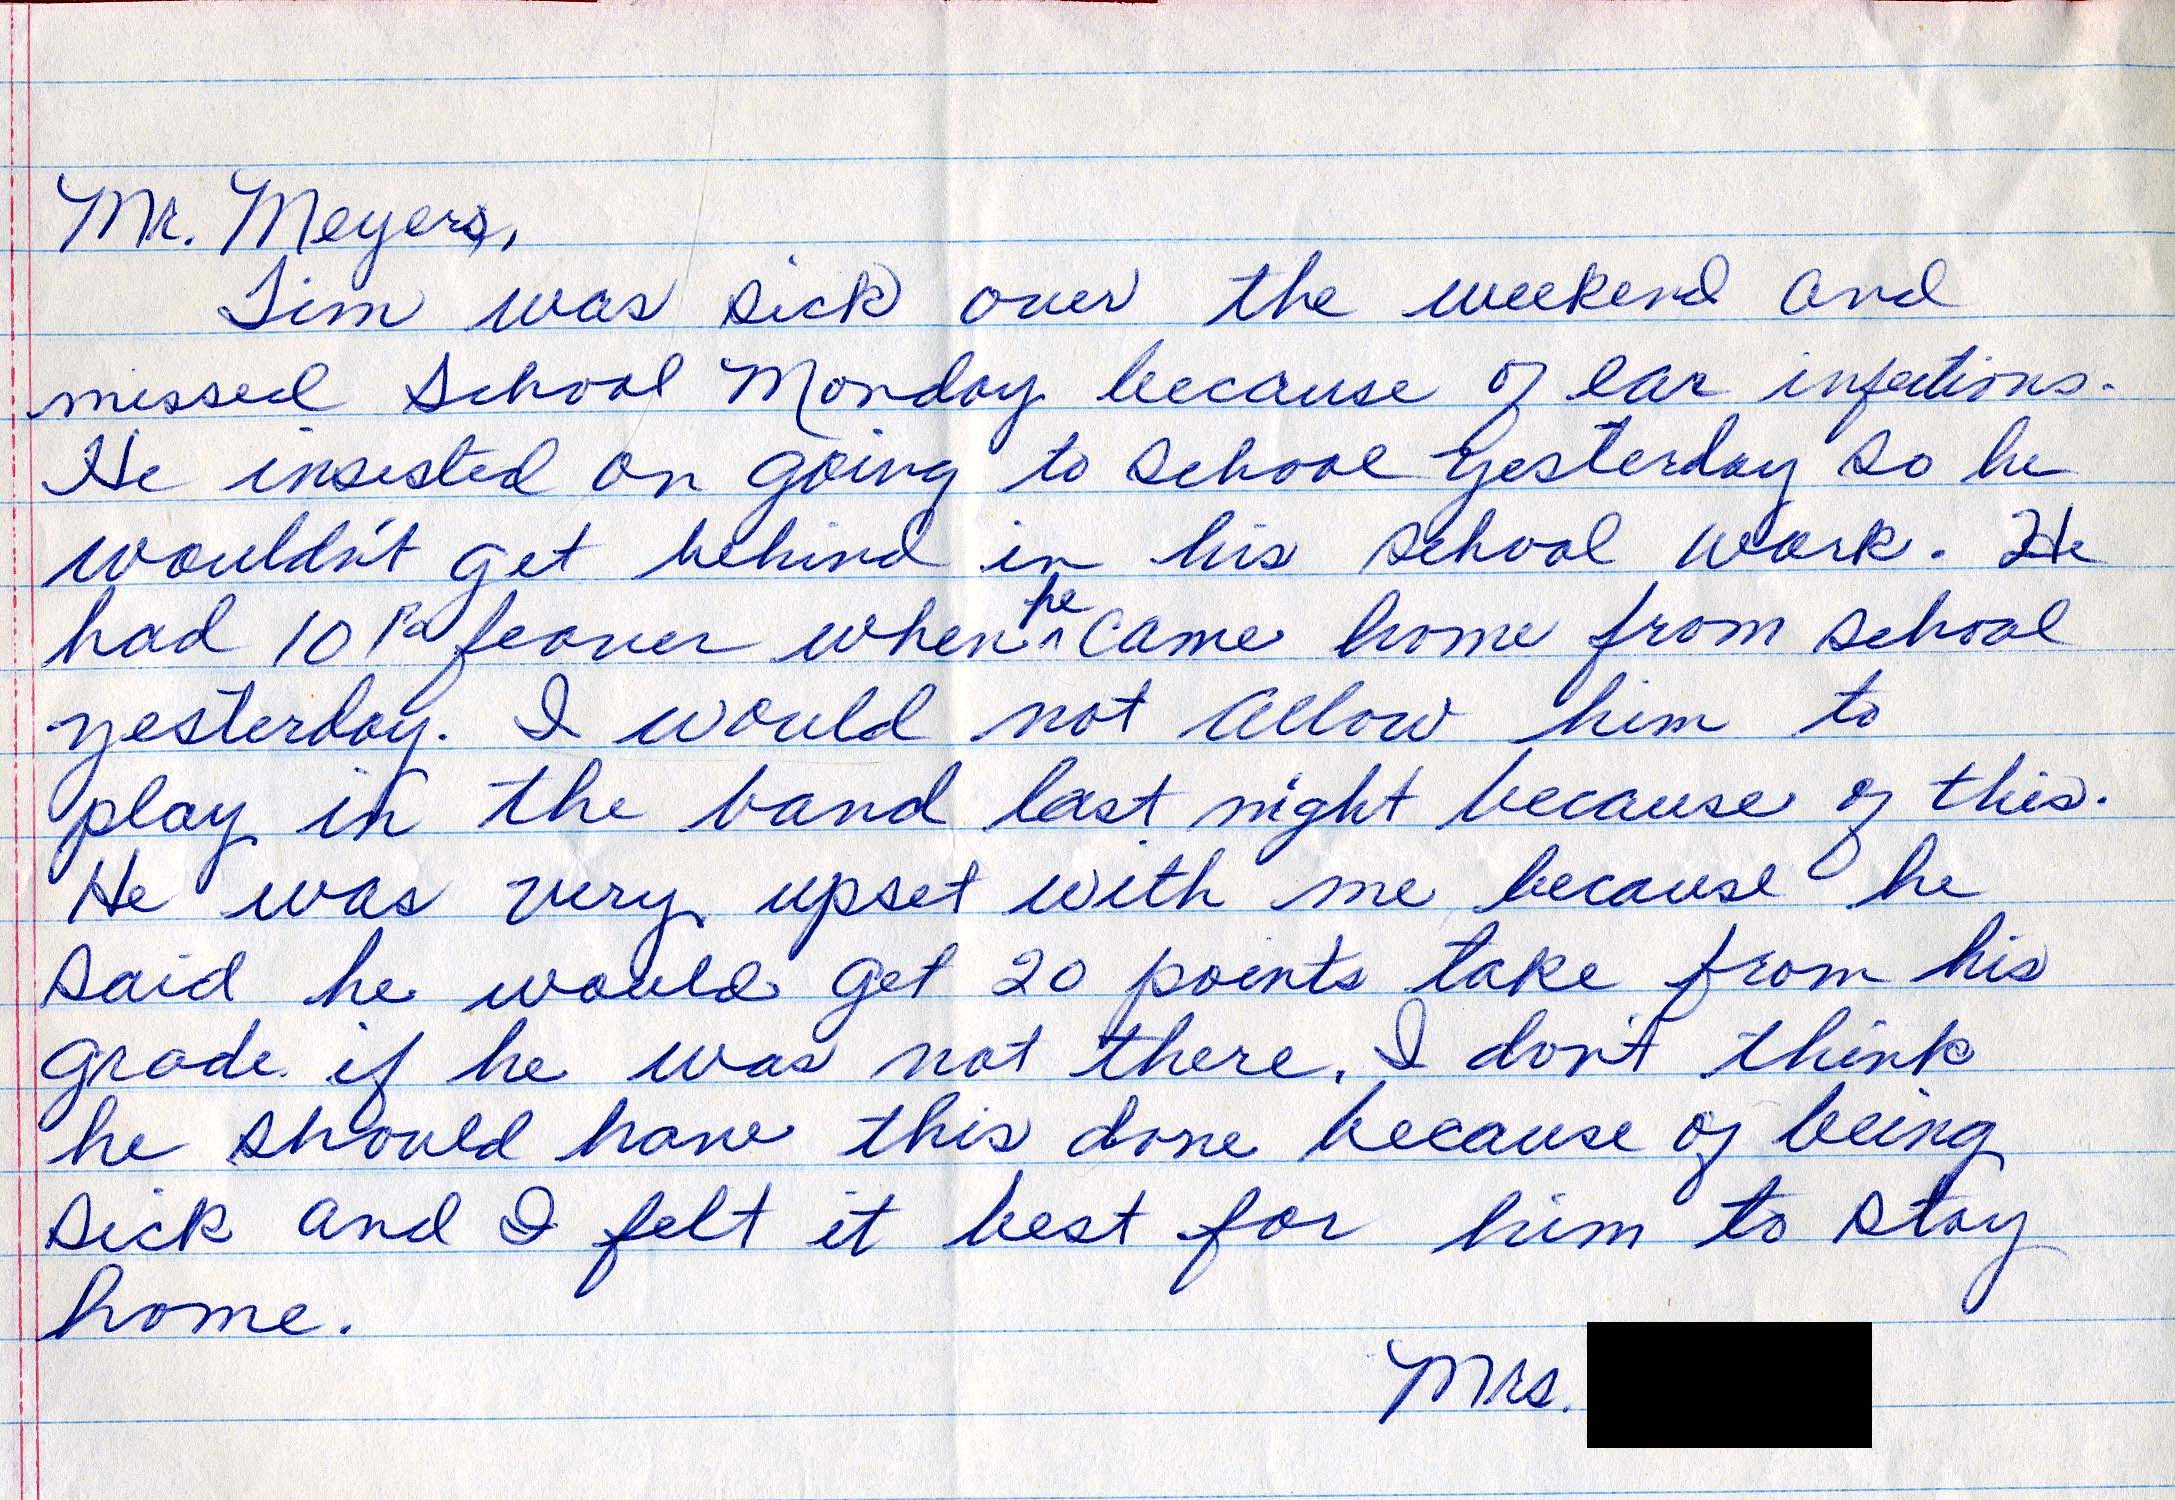 Mr. Meyers,
Tim was sick over the weekend and
missed school Monday because of ear infections.
He insisted on going to school yesterday so he
wouldn't get behind in his school work. He
had 101º feaver when he came home from school
yesterday. I would not allow him to
play in the band last night because of this.
He was very upset with me because he
said he would get 20 points take from his
grade if he was not there. I don't think
he should have this done because of being
sick and I felt it best for him to stay
home.
Mrs.